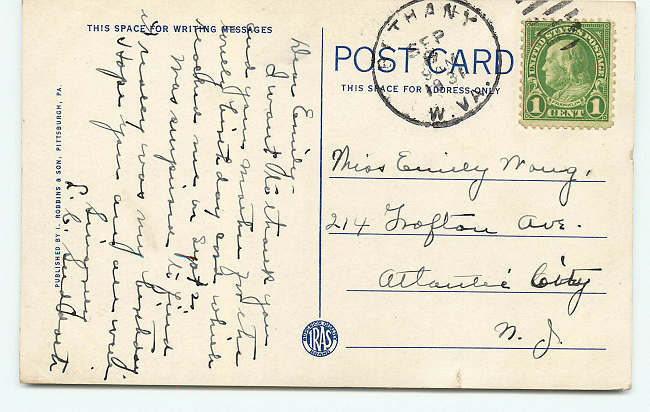 THIS SPACE FOR WRITING MESSAGES
Dear Emily-
I want to thank you
and your mother for the
lovely birthday card which
reached me on Sept 2
Was surprised to find
it really was my birthday.
Hope you and all well
Sincerely
PUBLISHED BY I. ROBBINS & SON, PITTSBURGH, PA.
POST CARD
THIS SPACE FOR ADDRESS ONLY
BETHANY
SEP
1931
W. VA.
UNITED STATES POSTAGE
FRANKLIN
1 CENT 1
Miss Emily Wong,
214 Grofton Ave.
Atlantic City
N. J.
IRAS